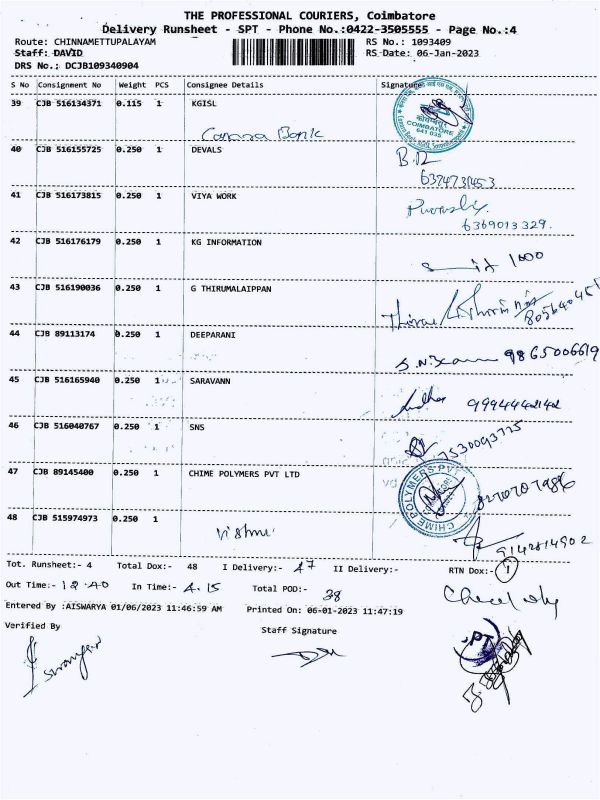 THE PROFESSIONAL COURIERS, Coimbatore
Delivery Runsheet - SPT - Phone No.:0422-3505555 - Page No.:4
Route: CHINNAMETTUPALAYAM RS No.: 1093409
Staff: DAVID RS Date: 06-Jan-2023
DRS No.: DCJB109340904
S No Consignment No Weight PCS Consignee Details Signature
39 CJB 516134371 0.115 1 KGISL
COIMBATORE
641 035
Canara Bank
40 CJB 516155725 0.250 1 DEVALS
6374731453
41 CJB 516173815 0.250 1 VIYA WORK
6369013329.
42 CJB 516176179 0.250 1 KG INFORMATION
1000
43 CJB 516190036 0.250 1 G THIRUMALAIPPAN
44 CJB 89113174 0.250 1 DEEPARANI
9865006619
45 CJB 516165940 0.250 1 SARAVANN
9994442142
46 CJB 516040767 0.250 1 SNS
7530093725
47 CJB 89145400 0.250 1 CHIME POLYMERS PVT LTD
CHIME POLYMERS PVT
48 CJB 515974973 0.250 1
Vishnu
9142814902
Tot. Runsheet:- 4 Total Dox:- 48 I Delivery:- 47 II Delivery:- RTN Dox:- 1
Out Time:- 12.40 In Time:- 4.15 Total POD:- 38
Entered By :AISWARYA 01/06/2023 11:46:59 AM Printed On: 06-01-2023 11:47:19
Verified By Staff Signature
SPT